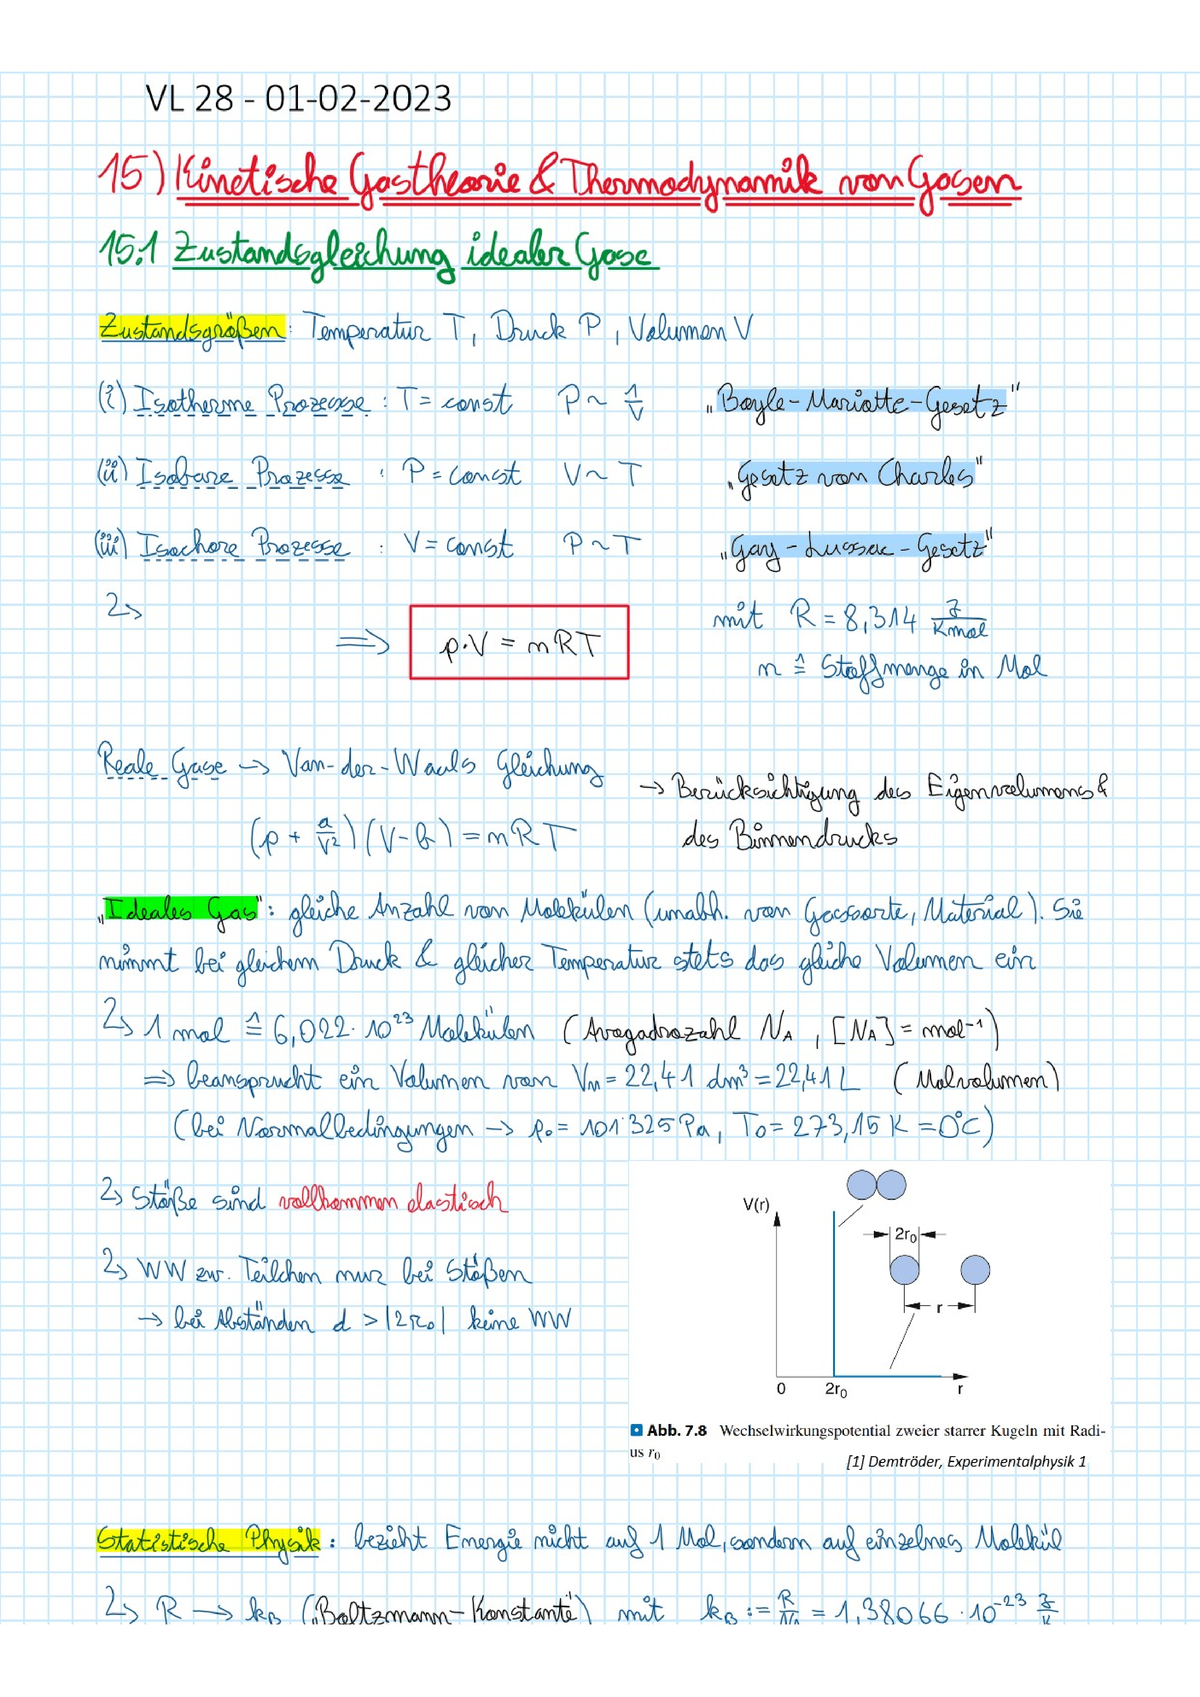 VL 28 - 01-02-2023
15) Kinetische Gastheorie & Thermodynamik von Gasen
15.1 Zustandsgleichung idealer Gase
Zustandsgrößen: Temperatur T, Druck P, Volumen V
(i) Isotherme Prozesse: T = const P ~ 1/V „Boyle-Mariotte-Gesetz"
(ii) Isobare Prozesse: P = const V ~ T „Gesetz von Charles"
(iii) Isochore Prozesse: V = const P ~ T „Gay-Lussac-Gesetz"
⇒ p·V = nRT mit R = 8,314 J/Kmol
n ≙ Stoffmenge in Mol
Reale Gase → Van-der-Waals Gleichung → Berücksichtigung des Eigenvolumens &
(p + a/V²)(V-b) = nRT des Binnendrucks
„Ideales Gas": gleiche Anzahl von Molekülen (unabh. von Gassorte, Material). Sie
nimmt bei gleichem Druck & gleicher Temperatur stets das gleiche Volumen ein
↳ 1 mol ≙ 6,022·10²³ Molekülen (Avogadrozahl N_A, [N_A] = mol⁻¹)
⇒ beansprucht ein Volumen von V_M = 22,41 dm³ = 22,41 L (Molvolumen)
(bei Normalbedingungen → p₀ = 101'325 Pa, T₀ = 273,15 K = 0°C)
↳ Stöße sind vollkommen elastisch
↳ WW zw. Teilchen nur bei Stößen
→ bei Abständen d > |2r₀| keine WW
V(r)
2r₀
r
0 2r₀ r
Abb. 7.8 Wechselwirkungspotential zweier starrer Kugeln mit Radi-
us r₀
[1] Demtröder, Experimentalphysik 1
Statistische Physik: bezieht Energie nicht auf 1 Mol, sondern auf einzelnes Molekül
↳ R → k_B („Boltzmann-Konstante") mit k_B := R/N_A = 1,38066·10⁻²³ J/K